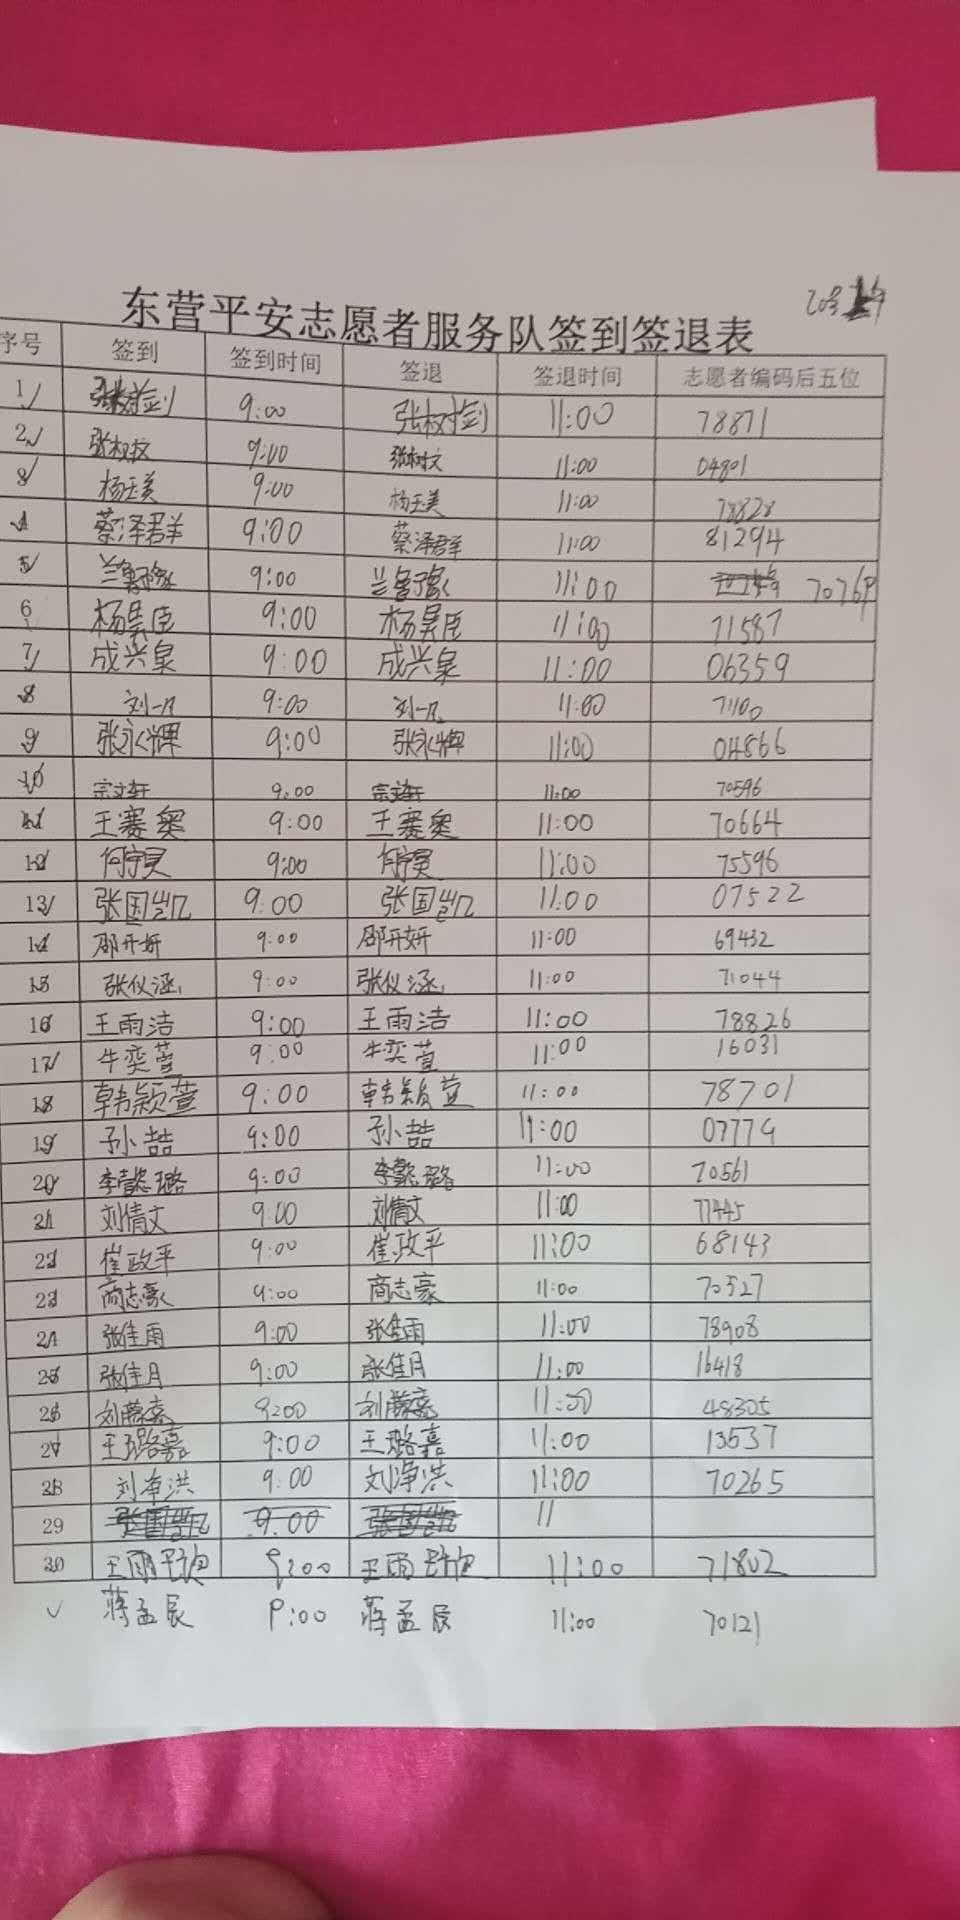 东营平安志愿者服务队签到签退表
序号 签到 签到时间 签退 签退时间 志愿者编码后五位
1 张树剑 9:00 张树剑 11:00 78871
2 张树文 9:00 张树文 11:00 04801
3 杨玉美 9:00 杨玉美 11:00 78828
4 蔡泽群 9:00 蔡泽群 11:00 81294
5 兰鲁豫 9:00 兰鲁豫 11:00
6 杨昊臣 9:00 杨昊臣 11:00 71587
7 成兴泉 9:00 成兴泉 11:00 06359
8 刘一凡 9:00 刘一凡 11:00 71100
9 张永辉 9:00 张永辉 11:00 04866
10 宗文轩 9:00 宗文轩 11:00 70596
11 王赛奥 9:00 王赛奥 11:00 70664
12 何宁灵 9:00 何宁灵 11:00 75596
13 张国凯 9:00 张国凯 11:00 07522
14 邵开妍 9:00 邵开妍 11:00 69432
15 张仪涵 9:00 张仪涵 11:00 71044
16 王雨洁 9:00 王雨洁 11:00 78826
17 牛奕萱 9:00 牛奕萱 11:00 16031
18 韩颖萱 9:00 韩颖萱 11:00 78701
19 孙喆 9:00 孙喆 11:00 07779
20 李懿璐 9:00 李懿璐 11:00 70561
21 刘倩文 9:00 刘倩文 11:00 77445
22 崔政平 9:00 崔政平 11:00 68143
23 商志豪 9:00 商志豪 11:00 70527
24 张佳雨 9:00 张佳雨 11:00 78908
25 张佳月 9:00 张佳月 11:00 16418
26 9:00 11:00 48305
27 王璐嘉 9:00 王璐嘉 11:00 13537
28 刘净洪 9:00 刘净洪 11:00 70265
29 张国凯 9:00 张国凯 11
30 9:00 11:00 71802
蒋孟辰 9:00 蒋孟辰 11:00 70121